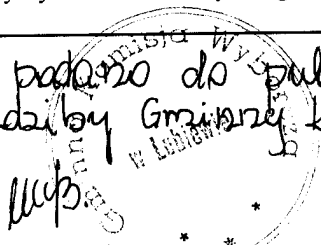 podano do pub
dziby Gminnej K
Gminna Komisja Wyborcza
w Lubiewie